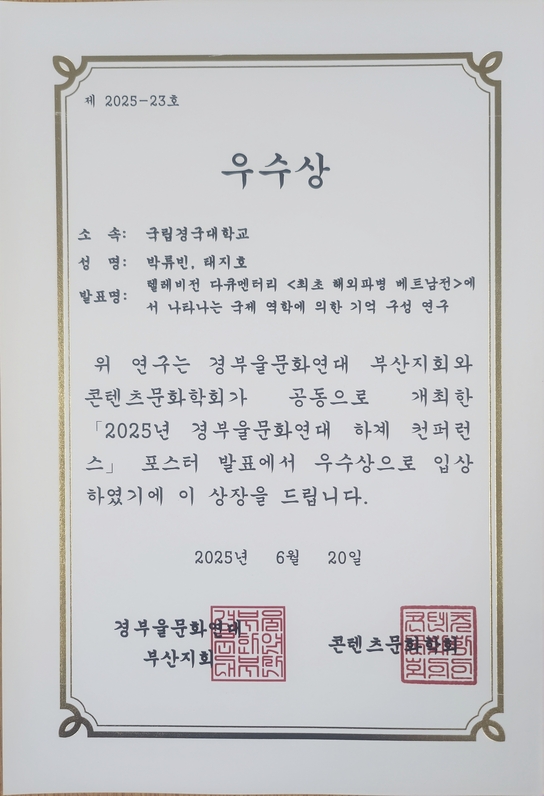 제 2025-23호
우수상
소 속: 국립경국대학교
성 명: 박류빈, 태지호
발표명: 텔레비전 다큐멘터리 <최초 해외파병 베트남전>에
서 나타나는 국제 역학에 의한 기억 구성 연구
위 연구는 경부울문화연대 부산지회와
콘텐츠문화학회가 공동으로 개최한
「2025년 경부울문화연대 하계 컨퍼런
스」 포스터 발표에서 우수상으로 입상
하였기에 이 상장을 드립니다.
2025년 6월 20일
경부울문화연대
부산지회
콘텐츠문화학회